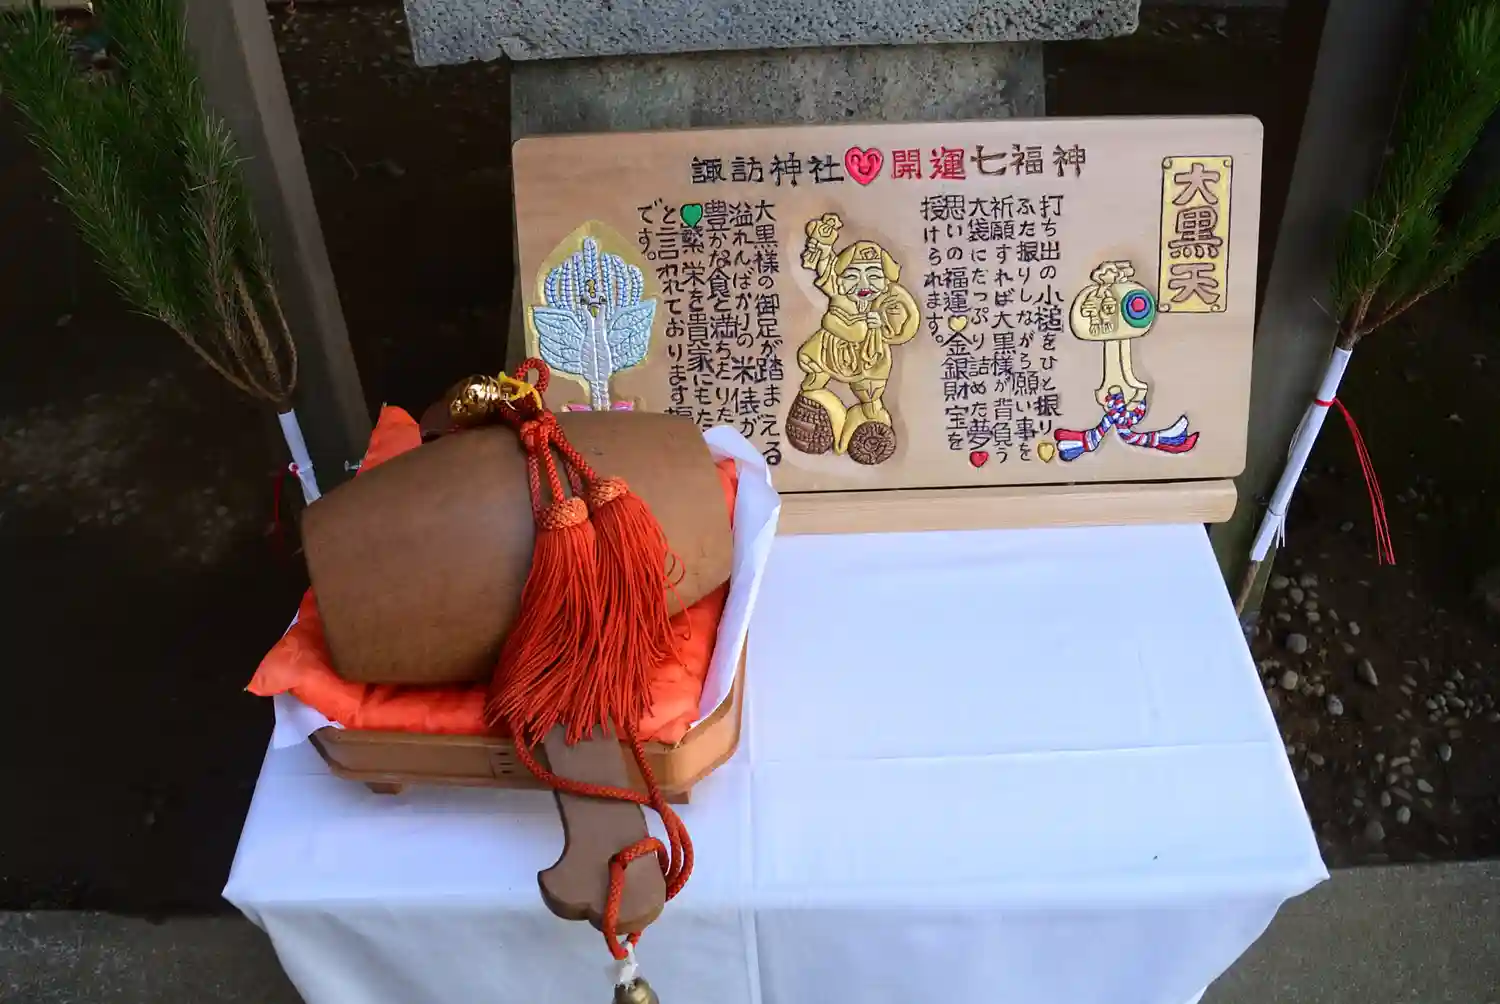 諏訪神社 開運七福神
大黒天
打ち出の小槌をひと振り
ふた振りしながら願い事を
祈願すれば大黒様が背負う
大袋にたっぷり詰めた夢
思いの福運金銀財宝を
授けられます。
大黒様の御足が踏まえる
溢れんばかりの米俵が
豊かな食と満ちたりた
繁栄を貴家にもた
と言われております
です。